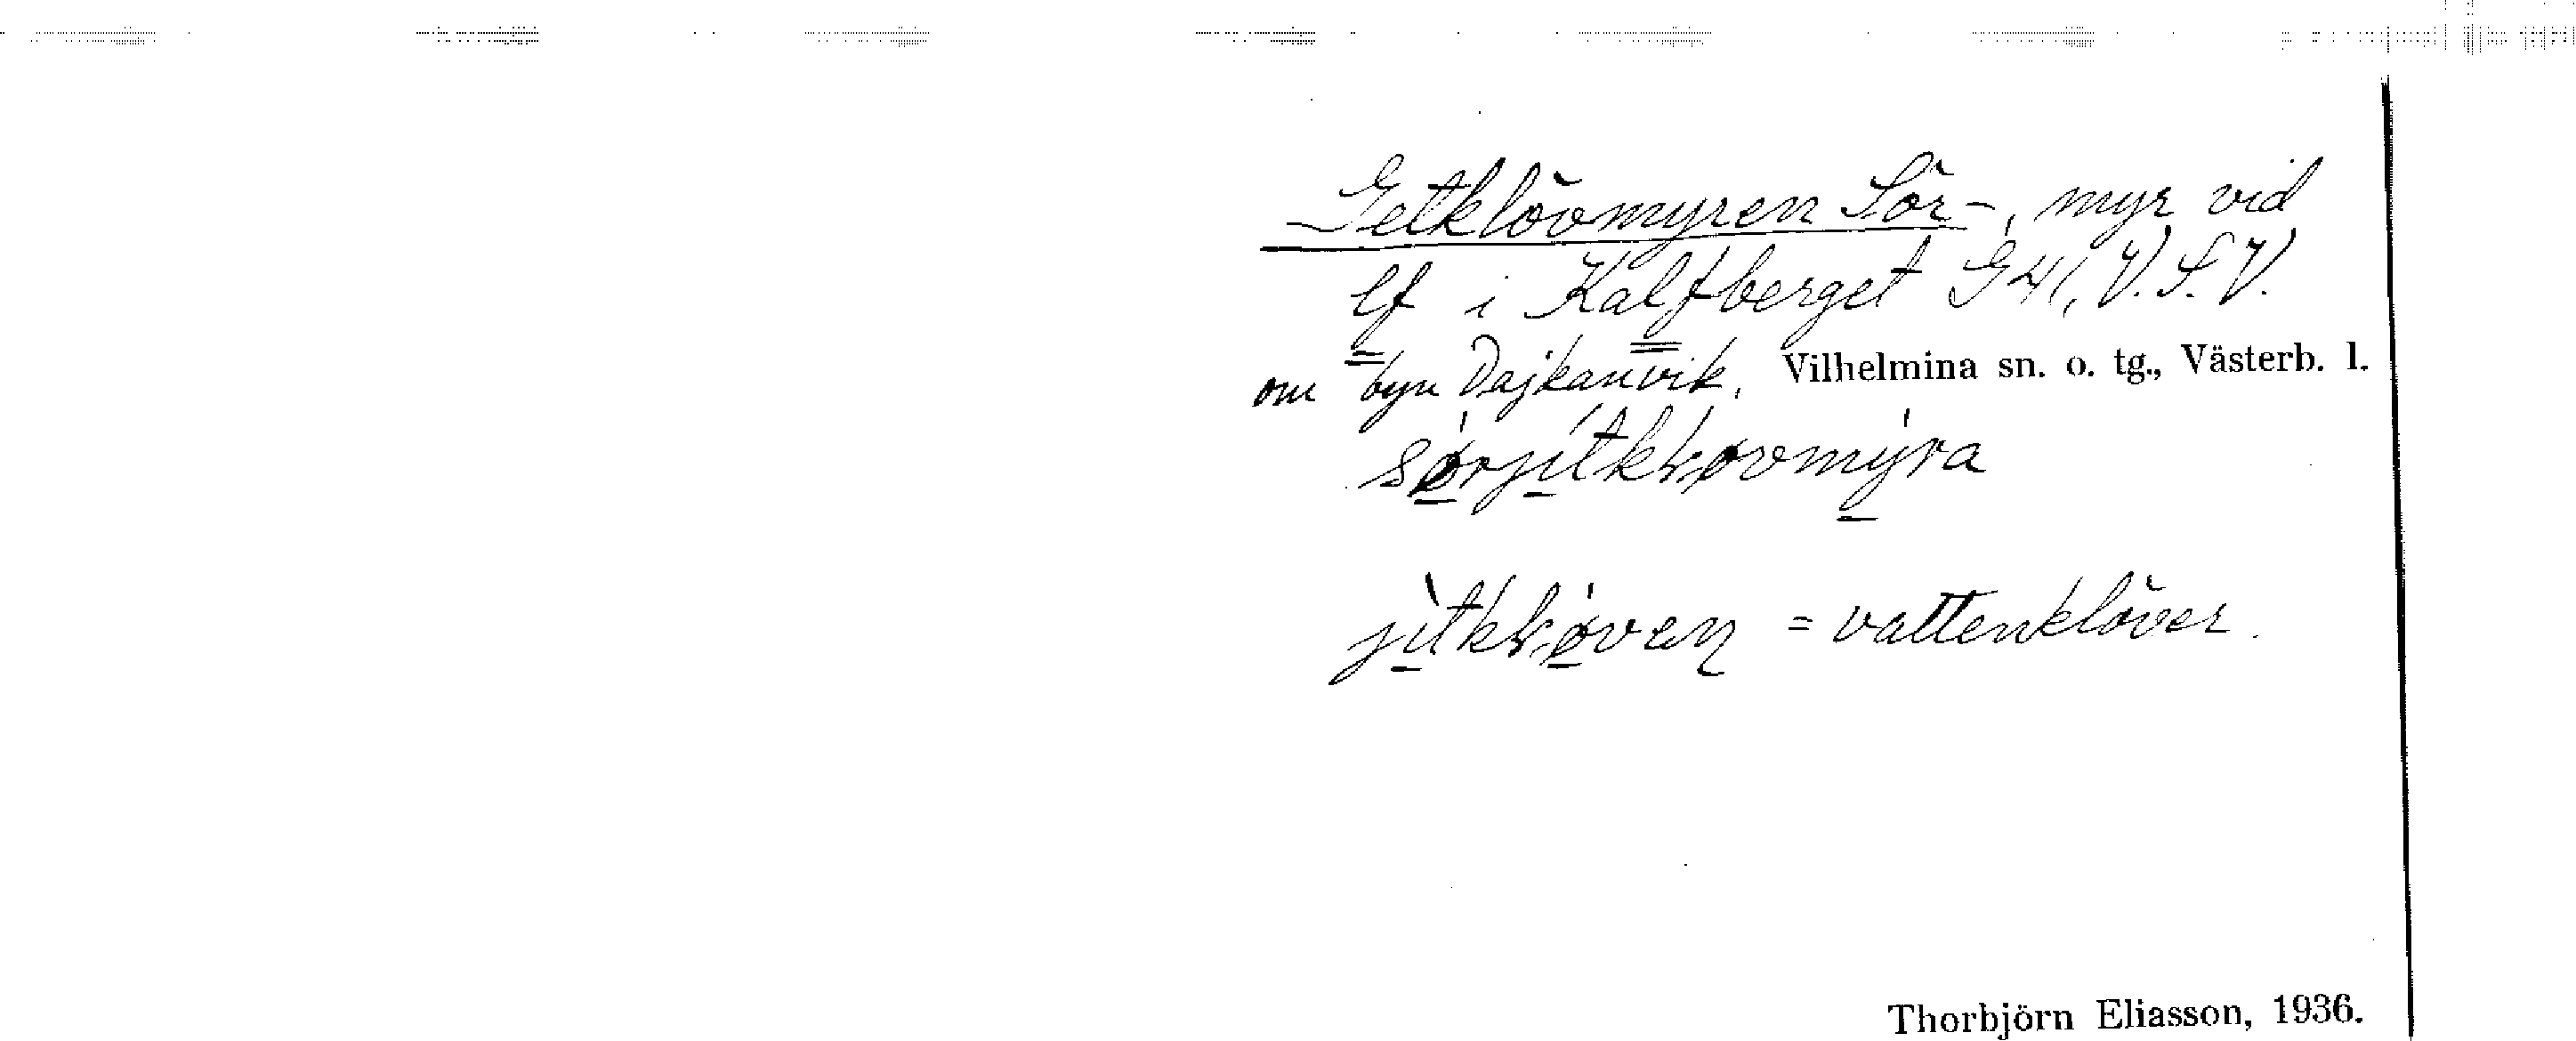 Getklövmyren Sör-, myr vid
lf i Kalfberget G41, V.S.V.
om byn Dajkanvik, Vilhelmina sn. o. tg., Västerb. l.
= vattenklöver.
Thorbjörn Eliasson, 1936.